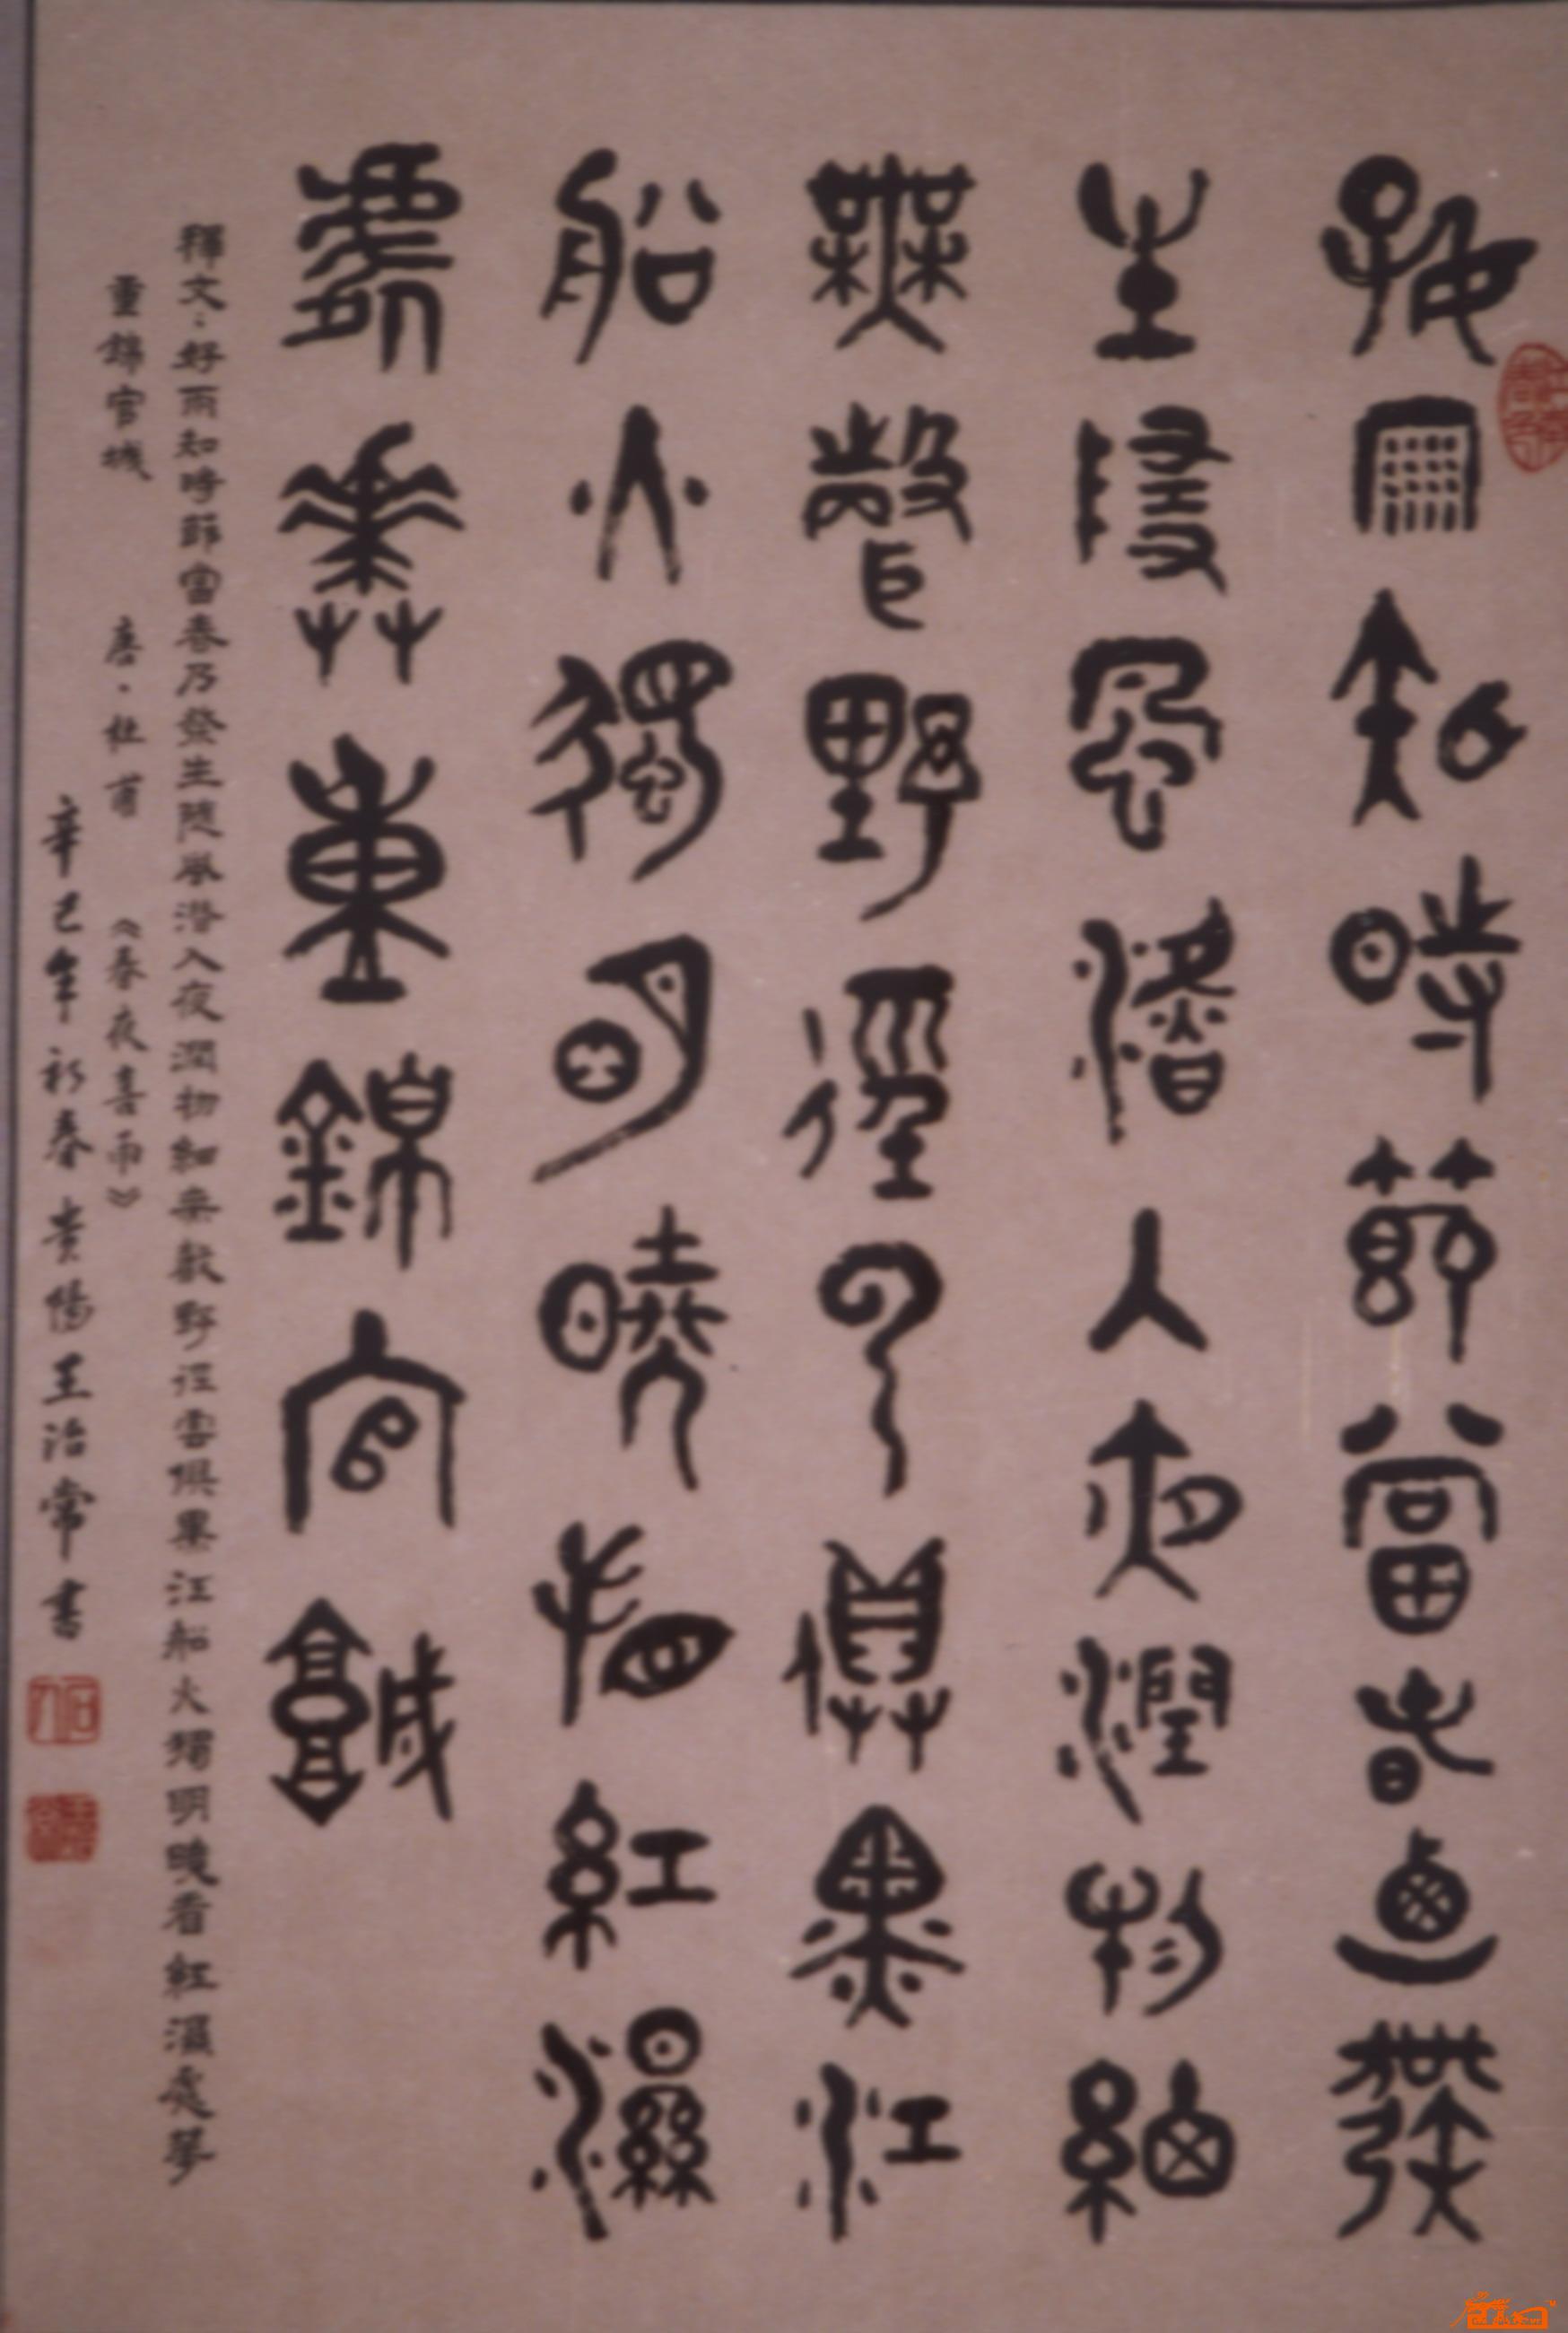 好雨知時節當春迺發
生隨風潛入夜潤物細
無聲野徑雲俱黑江
船火獨明曉看紅濕
處華重錦官城
釋文：好雨知時節當春乃發生隨風潛入夜潤物細無聲野徑雲俱黑江船火獨明曉看紅濕處華
重錦官城 唐·杜甫 《春夜喜雨》
辛巳年初春貴陽王治常書